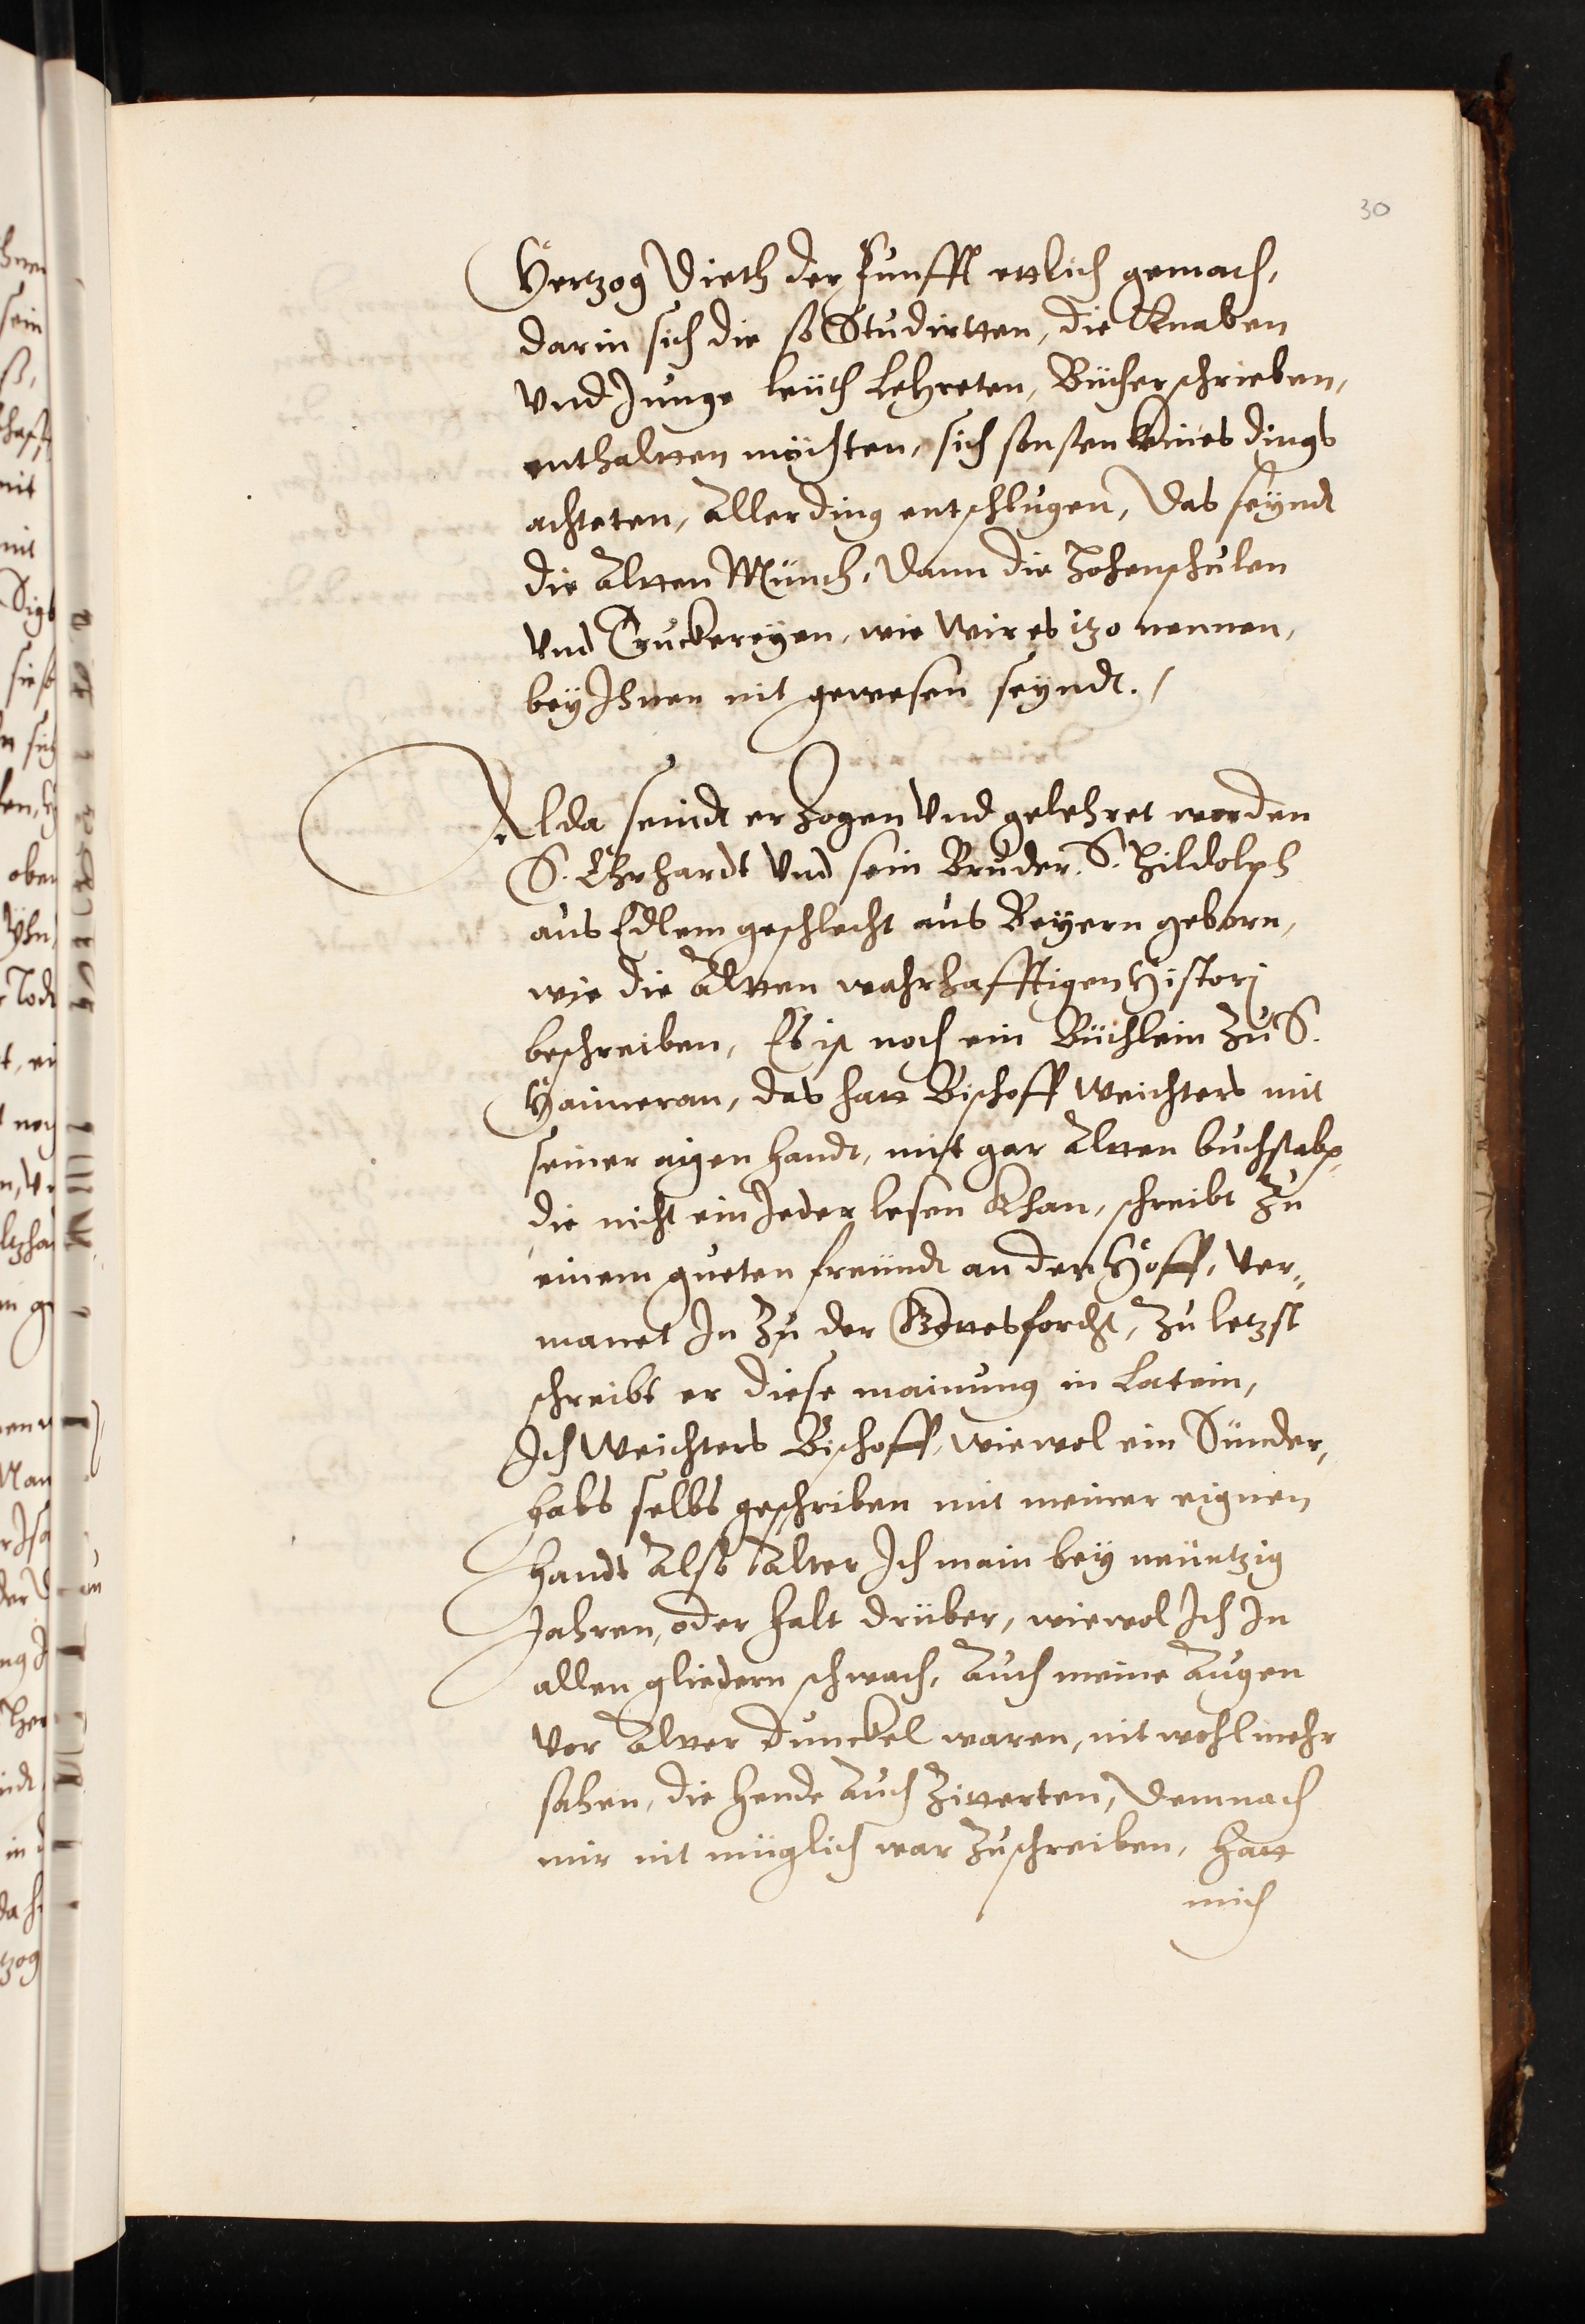 30
Hertzog Dieth der Funfft ettlich gemach,
darin sich die so Studirtten, die Knaben
Vnd Junge leüth Lehreten, Bücher schrieben,
enthaltten möchten, sich sonsten keines dings
achteten, Aller ding entschlugen, Das seyndt
die Altten Münch, Dann die Hohenschulen
Vnd Truckereyen, wie Wir es itzo nennen,
bey Ihnen nit gewesen seyndt. /
Alda seindt erzogen Vnd gelehret worden
S. Ehrhardt Vnd sein Bruder. S. Hildolph
aus Edlem geschlecht aus Beyern geborn,
wie die Altten wahrhafftigen Histori
beschreiben, Es ist noch ein Büchlein Zu S.
Haimeran, das hatt Bischoff Weichters mit
seiner aigen handt, mit gar Altten buchstabn,
die nicht ein Jeder lesen Khan, schreibt Zu
einem gueten freündt an den Hoff, Ver„
manet In Zu der Gottesforcht, Zu letzst
schreibt er diese mainung in Latein,
Ich Weichters Bischoff, wiewol ein Sünder,
habs selbs geschriben mit meiner eignen
handt Also Alter Ich main bey neüntzig
Jahren, oder halt drüber, wiewol Ich In
allen gliedern schwach, Auch meine Augen
Vor Alter Dunckel waren, nit wohl mehr
sahen, die hende Auch Zitterten, Demnach
mir nit müglich war Zuschreiben, hatt
mich